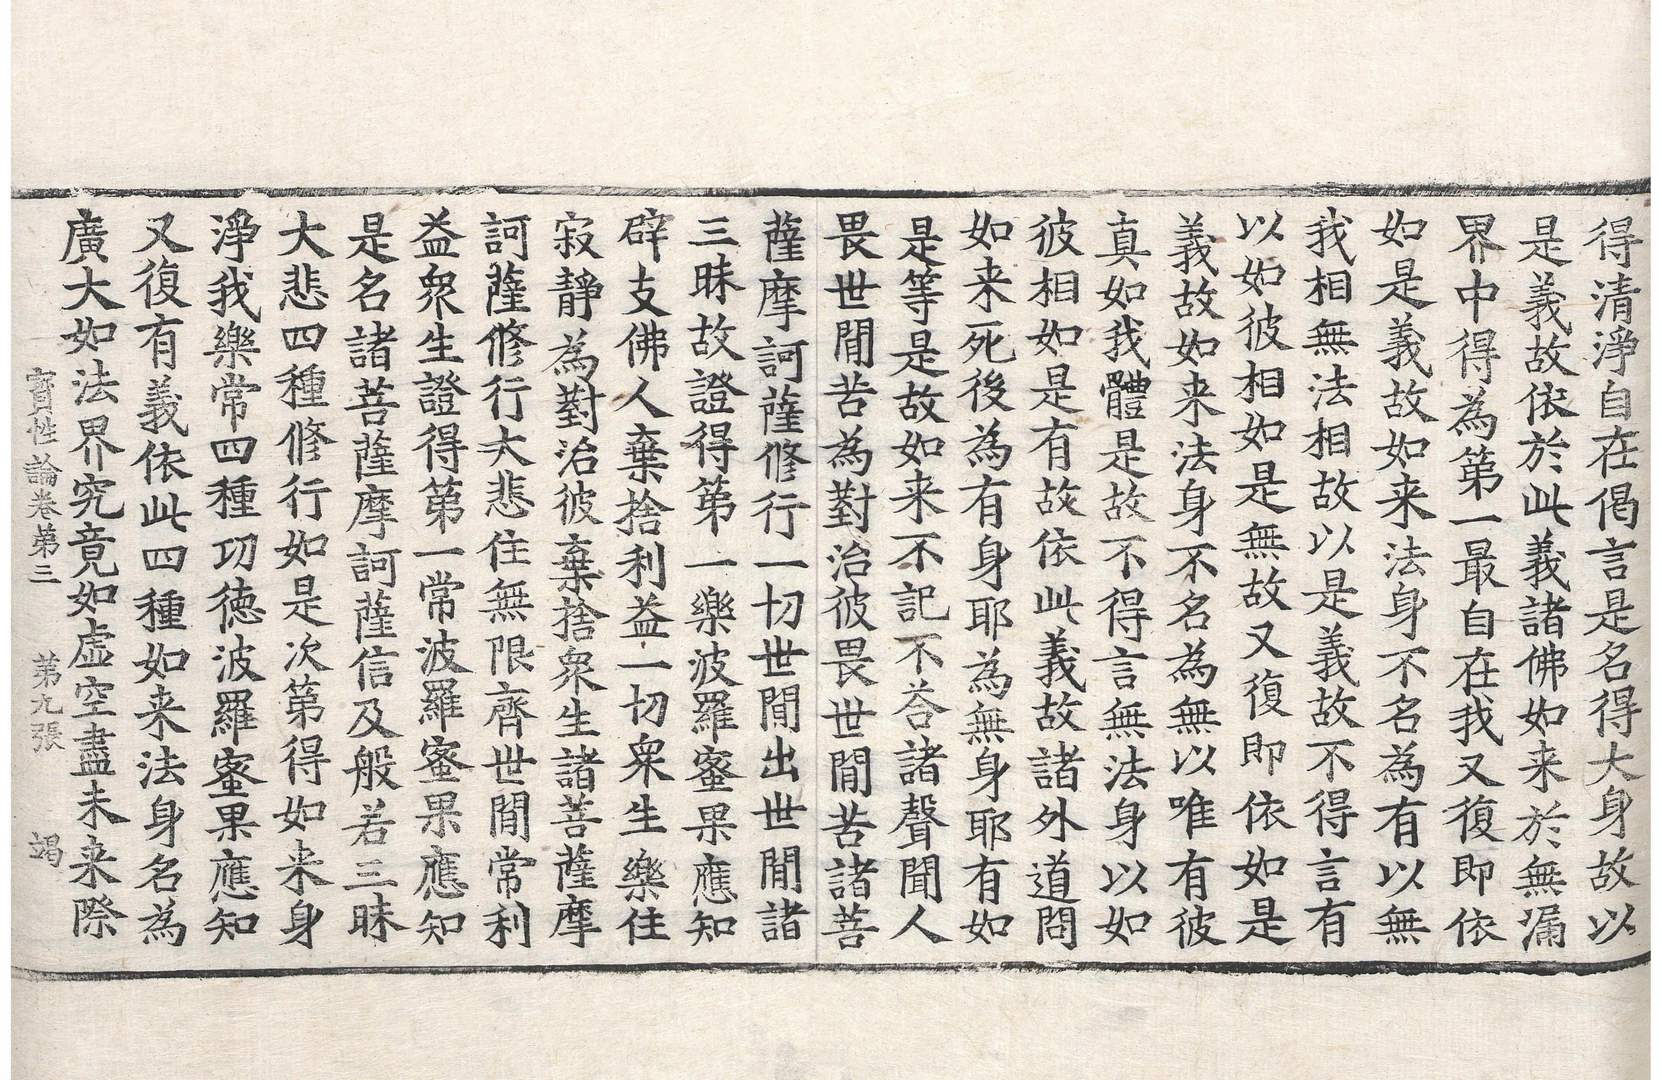 得清淨自在偈言是名得大身故以
是義故依於此義諸佛如来於無漏
界中得為第一最自在我又復即依
如是義故如来法身不名為有以無
我相無法相故以是義故不得言有
以如彼相如是無故又復即依如是
義故如来法身不名為無以唯有彼
真如我體是故不得言無法身以如
彼相如是有故依此義故諸外道問
如来死後為有身耶為無身耶有如
是等是故如来不記不荅諸聲聞人
畏世間苦為對治彼畏世間苦諸菩
薩摩訶薩修行一切世間出世間諸
三昧故證得第一樂波羅蜜果應知
辟支佛人棄捨利益一切衆生樂住
寂靜為對治彼棄捨衆生諸菩薩摩
訶薩修行大悲住無限齊世間常利
益衆生證得第一常波羅蜜果應知
是名諸菩薩摩訶薩信及般若三昧
大悲四種修行如是次第得如来身
淨我樂常四種功德波羅蜜果應知
又復有義依此四種如来法身名為
廣大如法界究竟如虛空盡未来際
寶性論卷第三 第九張 竭